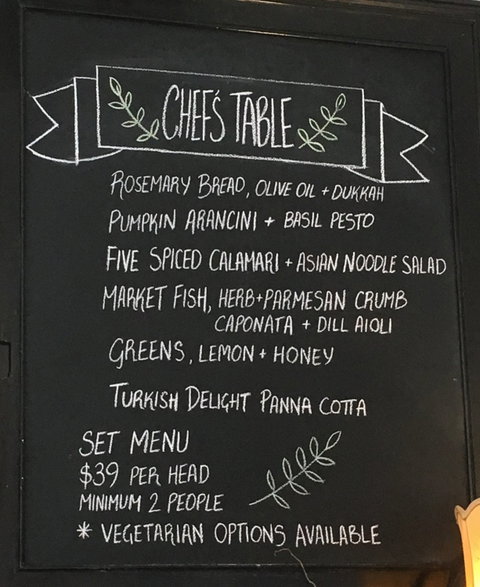 CHEF'S TABLE
ROSEMARY BREAD, OLIVE OIL + DUKKAH
PUMPKIN ARANCINI + BASIL PESTO
FIVE SPICED CALAMARI + ASIAN NOODLE SALAD
MARKET FISH, HERB+PARMESAN CRUMB
CAPONATA + DILL AIOLI
GREENS, LEMON + HONEY
TURKISH DELIGHT PANNA COTTA
SET MENU
$39 PER HEAD
MINIMUM 2 PEOPLE
* VEGETARIAN OPTIONS AVAILABLE